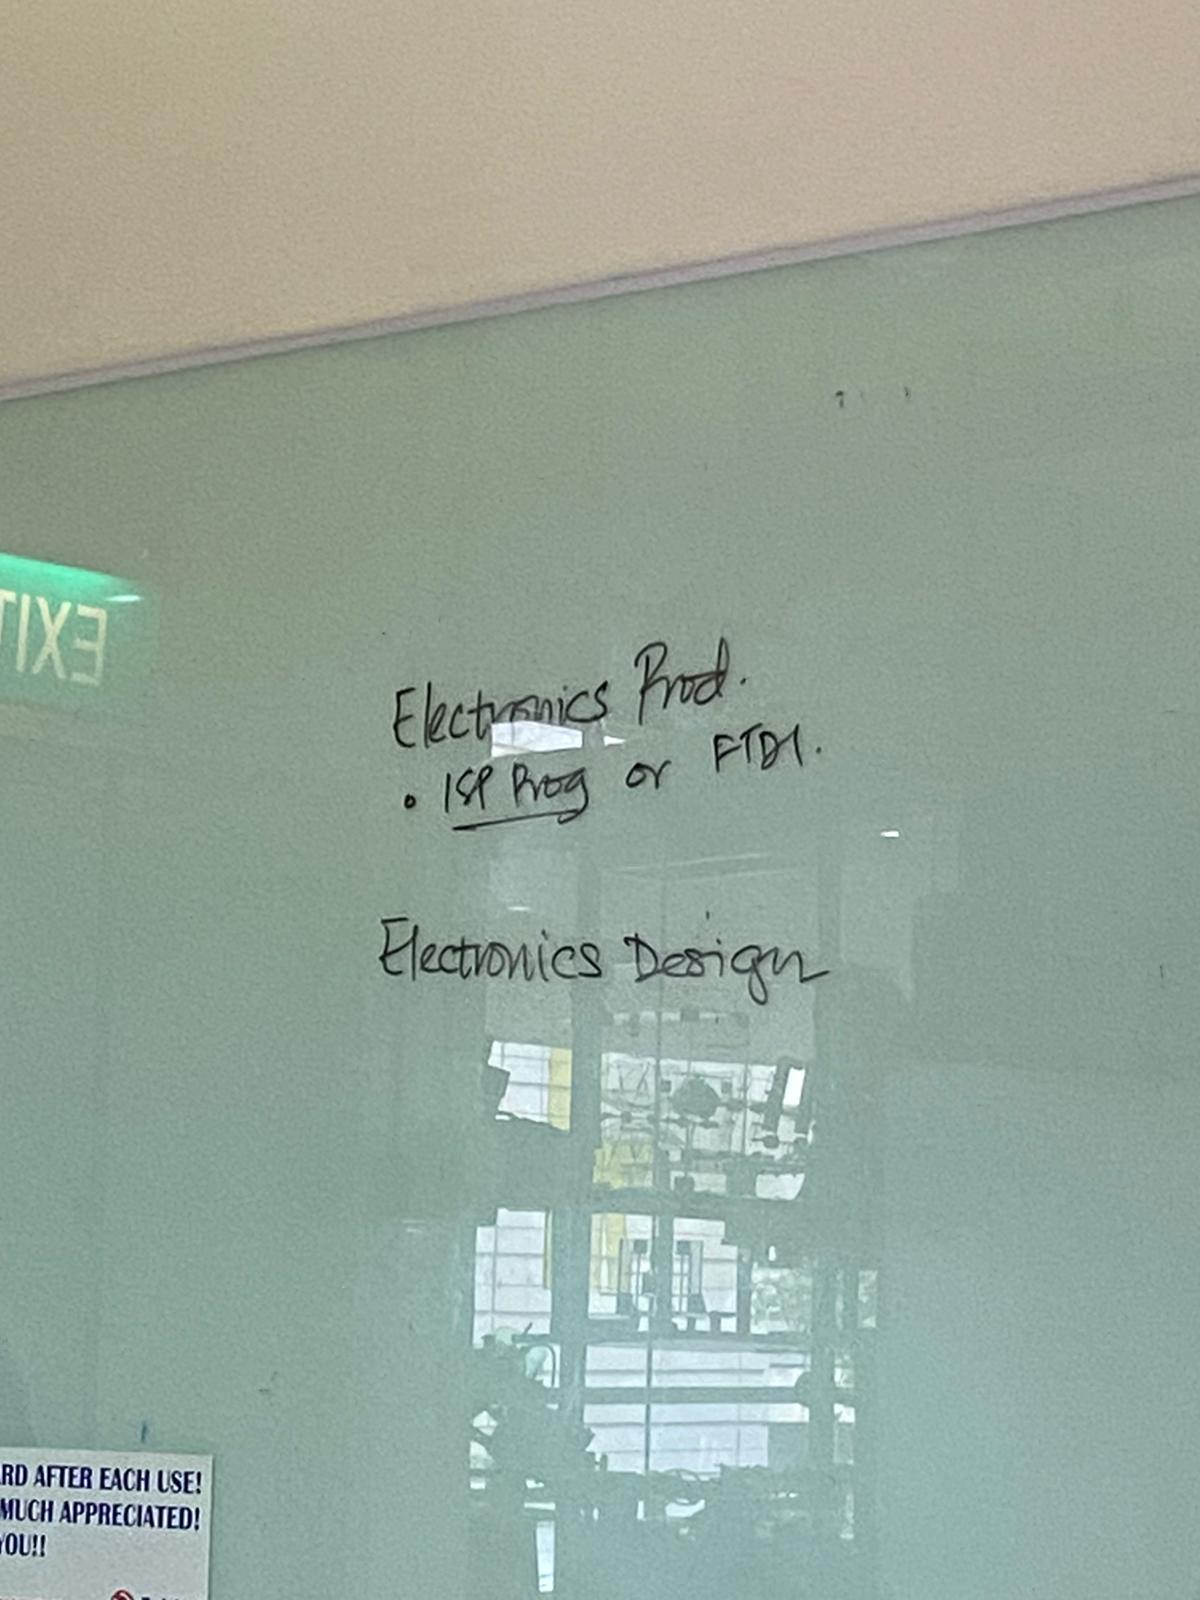 EXIT
Electronics Prod.
• ISP Prog or FTDI.
Electronics Design
RD AFTER EACH USE!
MUCH APPRECIATED!
YOU!!